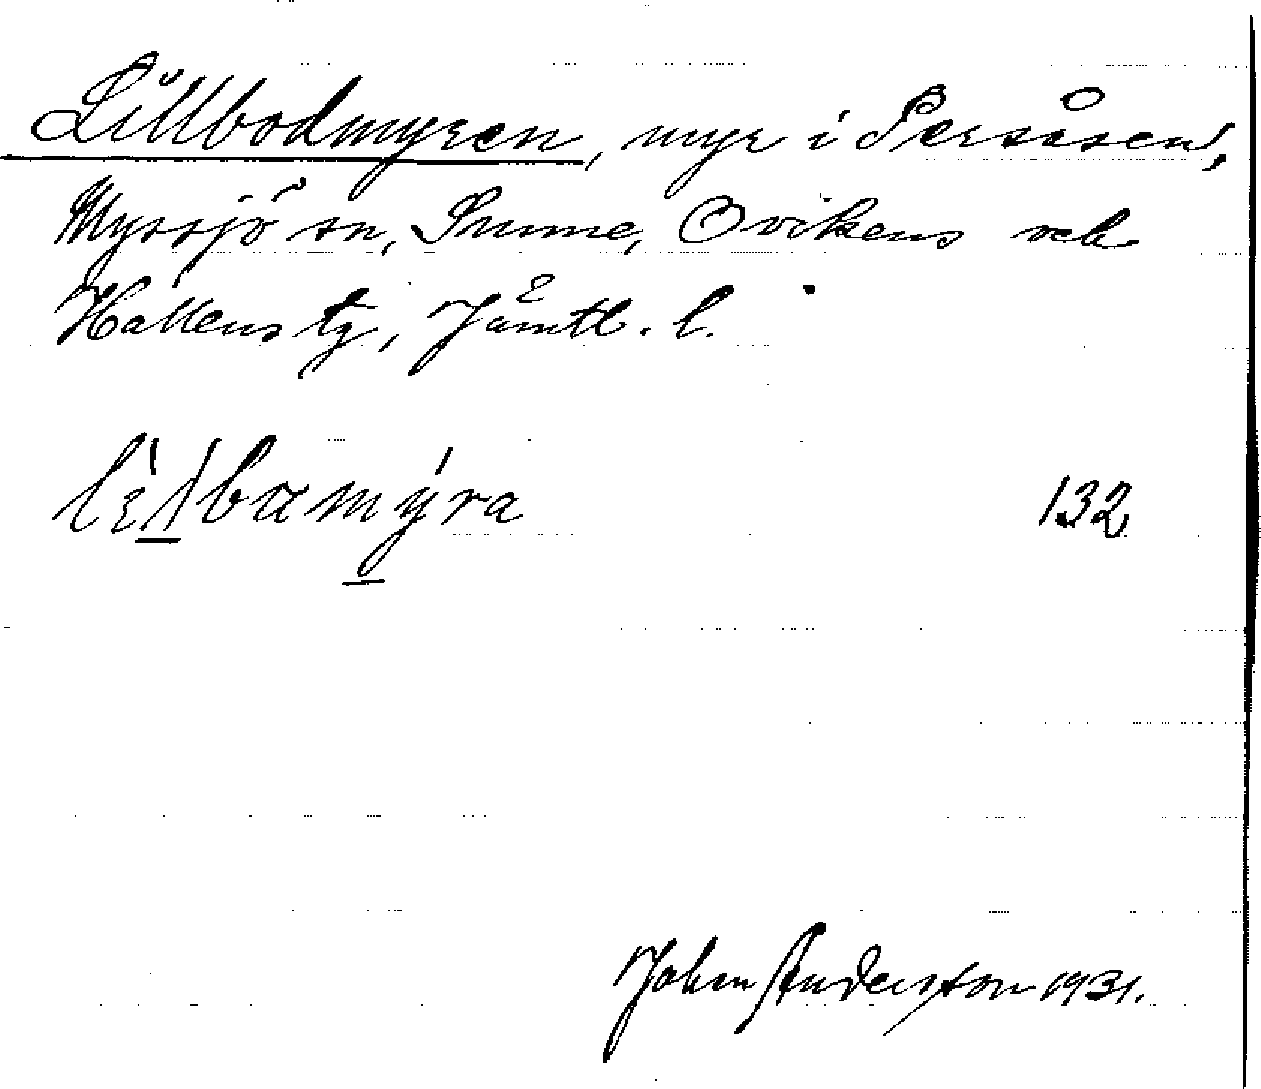 Lillbodmyren, myr i Persåsen,
Myssjö sn, Sunne, Ovikens och
Hallens tg, Jämtl. l.
132
John Anderston 1931.